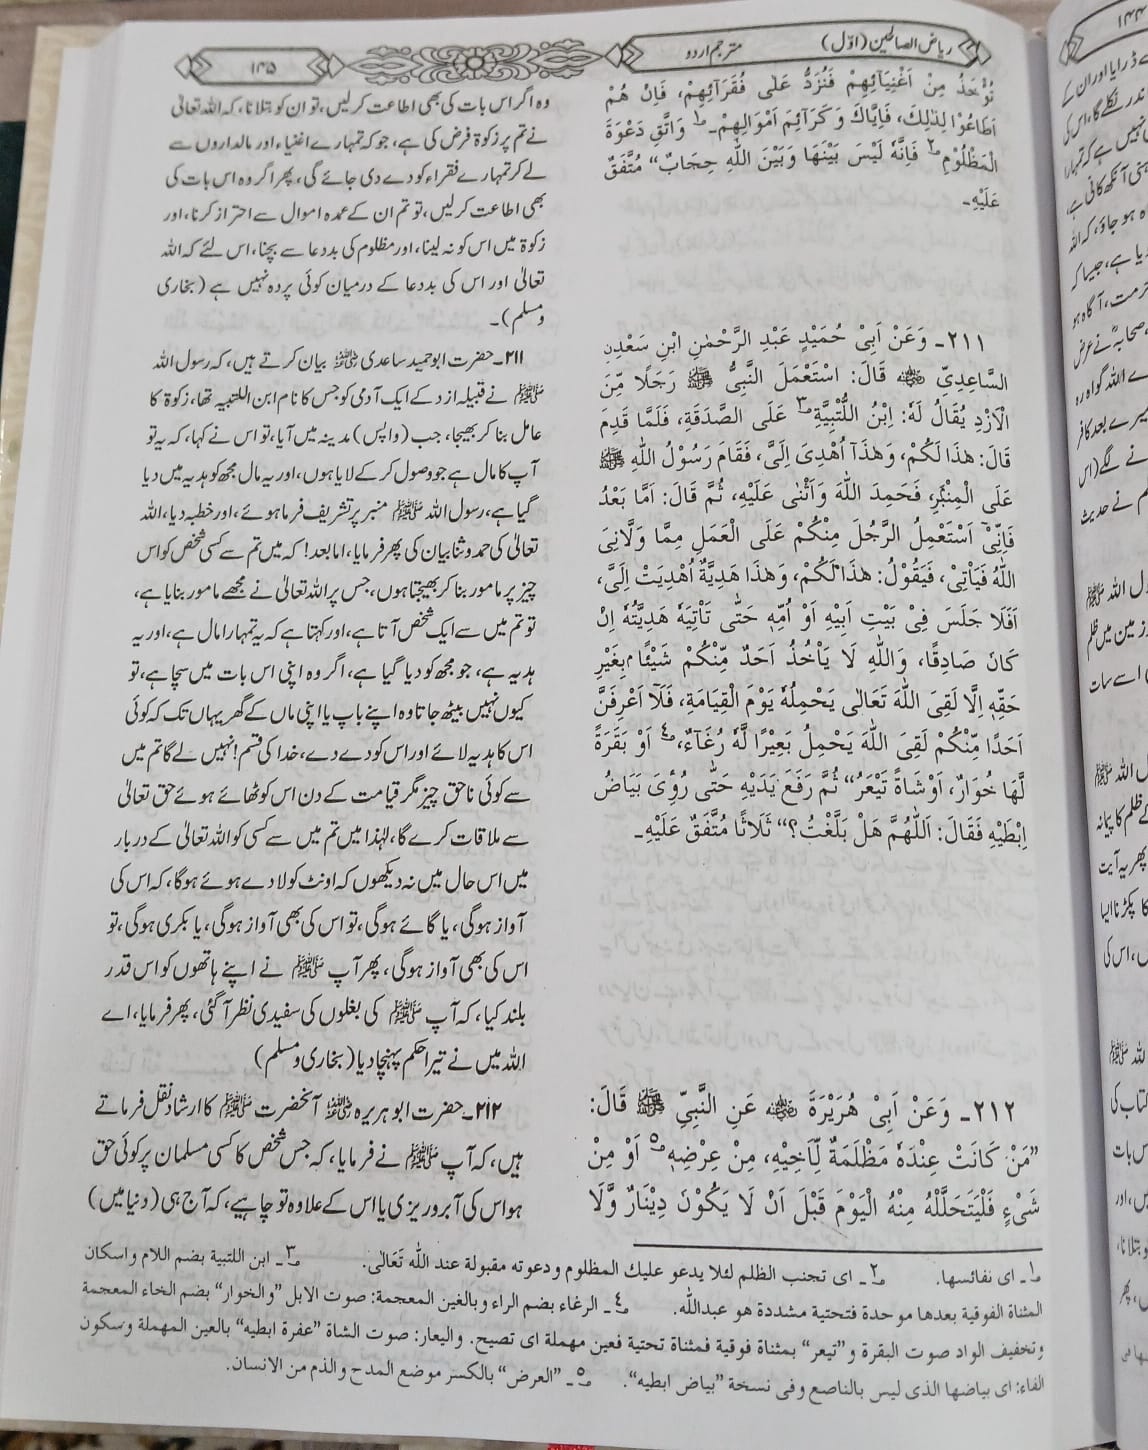 ریاض الصالحین (اوّل)
مترجم اردو
۱۴۵
تُؤْخَذُ مِنْ اَغْنِيَآئِهِمْ فَتُرَدُّ عَلٰى فُقَرَآئِهِمْ، فَاِنْ هُمْ
اَطَاعُوْا لِذٰلِكَ، فَاِيَّاكَ وَكَرَآئِمَ اَمْوَالِهِمْ۔ ۱ وَاتَّقِ دَعْوَةَ
الْمَظْلُوْمِ ۲ فَاِنَّهٗ لَيْسَ بَيْنَهَا وَبَيْنَ اللّٰهِ حِجَابٌ“ مُتَّفَقٌ
عَلَيْهِ۔
۲۱۱۔ وَعَنْ اَبِىْ حُمَيْدٍ عَبْدِ الرَّحْمٰنِ ابْنِ سَعْدِنِ
السَّاعِدِيِّ ؓ قَالَ: اسْتَعْمَلَ النَّبِىُّ ﷺ رَجَلًا مِّنَ
الْاَزْدِ يُقَالُ لَهٗ: اِبْنُ اللُّتْبِيَّةِ ۳ عَلَى الصَّدَقَةِ، فَلَمَّا قَدِمَ
قَالَ: هٰذَا لَكُمْ، وَهٰذَآ اُهْدِىَ اِلَىَّ، فَقَامَ رَسُوْلُ اللّٰهِ ﷺ
عَلَى الْمِنْبَرِ، فَحَمِدَ اللّٰهَ وَاَثْنٰى عَلَيْهِ، ثُمَّ قَالَ: اَمَّا بَعْدُ
فَاِنِّىْٓ اَسْتَعْمِلُ الرَّجُلَ مِنْكُمْ عَلَى الْعَمَلِ مِمَّا وَلَّانِىَ
اللّٰهُ فَيَاْتِىْ، فَيَقُوْلُ: هٰذَا لَكُمْ، وَهٰذَا هَدِيَّةٌ اُهْدِيَتْ اِلَىَّ،
اَفَلَا جَلَسَ فِىْ بَيْتِ اَبِيْهِ اَوْ اُمِّهٖ حَتّٰى تَاْتِيَهٗ هَدِيَّتُهٗ اِنْ
كَانَ صَادِقًا، وَاللّٰهِ لَا يَاْخُذُ اَحَدٌ مِّنْكُمْ شَيْئًا مبِغَيْرِ
حَقِّهٖ اِلَّا لَقِىَ اللّٰهَ تَعَالٰى يَحْمِلُهٗ يَوْمَ الْقِيَامَةِ، فَلَآ اَعْرِفَنَّ
اَحَدًا مِّنْكُمْ لَقِىَ اللّٰهَ يَحْمِلُ بَعِيْرًا لَّهٗ رُغَآءٌ، ٤ اَوْ بَقَرَةً
لَّهَا خُوَارٌ، اَوْ شَاةً تَيْعَرُ“ ثُمَّ رَفَعَ يَدَيْهِ حَتّٰى رُؤِىَ بَيَاضُ
اِبْطَيْهِ فَقَالَ: اَللّٰهُمَّ هَلْ بَلَّغْتُ؟“ ثَلَاثًا مُتَّفَقٌ عَلَيْهِ۔
۲۱۲۔ وَعَنْ اَبِىْ هُرَيْرَةَ ؓ عَنِ النَّبِىِّ ﷺ قَالَ:
”مَنْ كَانَتْ عِنْدَهٗ مَظْلَمَةٌ لِّاَخِيْهِ، مِنْ عِرْضِهٖ ٥ اَوْ مِنْ
شَىْءٍ فَلْيَتَحَلَّلْهُ مِنْهُ الْيَوْمَ قَبْلَ اَنْ لَا يَكُوْنَ دِيْنَارٌ وَّلَا
وہ اگر اس بات کی بھی اطاعت کر لیں، تو ان کو بتلانا، کہ اللہ تعالیٰ
نے تم پر زکوٰۃ فرض کی ہے، جو کہ تمہارے اغنیاء اور مالداروں سے
لے کر تمہارے فقراء کو دے دی جائے گی، پھر اگر وہ اس بات کی
بھی اطاعت کر لیں، تو تم ان کے عمدہ اموال سے احتراز کرنا، اور
زکوٰۃ میں اس کو نہ لینا، اور مظلوم کی بددعا سے بچنا، اس لئے کہ اللہ
تعالیٰ اور اس کی بددعا کے درمیان کوئی پردہ نہیں ہے (بخاری
ومسلم)۔
۲۱۱۔ حضرت ابوحمید ساعدی ؓ بیان کرتے ہیں، کہ رسول اللہ
ﷺ نے قبیلہ ازد کے ایک آدمی کو جس کا نام ابن اللتبیہ تھا، زکوٰۃ کا
عامل بنا کر بھیجا، جب (واپس) مدینہ میں آیا، تو اس نے کہا، کہ یہ تو
آپ کا مال ہے جو وصول کر کے لایا ہوں، اور یہ مال مجھ کو ہدیہ میں دیا
گیا ہے، رسول اللہ ﷺ منبر پر تشریف فرما ہوئے، اور خطبہ دیا، اللہ
تعالیٰ کی حمد وثنا بیان کی پھر فرمایا، اما بعد! کہ میں تم سے کسی شخص کو اس
چیز پر مامور بنا کر بھیجتا ہوں، جس پر اللہ تعالیٰ نے مجھے مامور بنایا ہے،
تو تم میں سے ایک شخص آتا ہے، اور کہتا ہے کہ یہ تمہارا مال ہے، اور یہ
ہدیہ ہے، جو مجھ کو دیا گیا ہے، اگر وہ اپنی اس بات میں سچا ہے، تو
کیوں نہیں بیٹھ جاتا وہ اپنے باپ یا اپنی ماں کے گھر یہاں تک کہ کوئی
اس کا ہدیہ لائے اور اس کو دے دے، خدا کی قسم! نہیں لے گا تم میں
سے کوئی ناحق چیز مگر قیامت کے دن اس کو ٹھائے ہوئے حق تعالیٰ
سے ملاقات کرے گا، لہٰذا میں تم میں سے کسی کو اللہ تعالیٰ کے دربار
میں اس حال میں نہ دیکھوں کہ اونٹ کو لادے ہوئے ہوگا، کہ اس کی
آواز ہوگی، یا گائے ہوگی، تو اس کی بھی آواز ہوگی، یا بکری ہوگی، تو
اس کی بھی آواز ہوگی، پھر آپ ﷺ نے اپنے ہاتھوں کو اس قدر
بلند کیا، کہ آپ ﷺ کی بغلوں کی سفیدی نظر آ گئی، پھر فرمایا، اے
اللہ میں نے تیرا حکم پہنچا دیا (بخاری ومسلم)
۲۱۲۔ حضرت ابوہریرہ ؓ آنحضرت ﷺ کا ارشاد نقل فرماتے
ہیں، کہ آپ ﷺ نے فرمایا، کہ جس شخص کا کسی مسلمان پر کوئی حق
ہو اس کی آبروریزی یا اس کے علاوہ تو چاہیے، کہ آج ہی (دنیا میں)
۱۔ ای نفائسها. ۲۔ ای تجنب الظلم لئلا يدعو عليك المظلوم ودعوته مقبولة عند اللّٰه تَعَالٰى. ۳۔ ابن اللتبية بضم اللام واسكان
المثناة الفوقية بعدها موحدة فتحتية مشددة هو عبداللّٰه. ٤۔ الرغاء بضم الراء وبالغين المعجمة: صوت الابل ”والخوار“ بضم الخاء المعجمة
وتخفيف الواد صوت البقرة و”تيعر“ بمثناة فوقية فمثناة تحتية فعين مهملة اى تصيح. واليعار: صوت الشاة ”عفرة ابطيه“ بالعين المهملة وسكون
الفاء: اى بياضها الذى ليس بالناصع وفى نسخة ”بياض ابطيه“. ٥۔ ”العرض“ بالكسر موضع المدح والذم من الانسان.